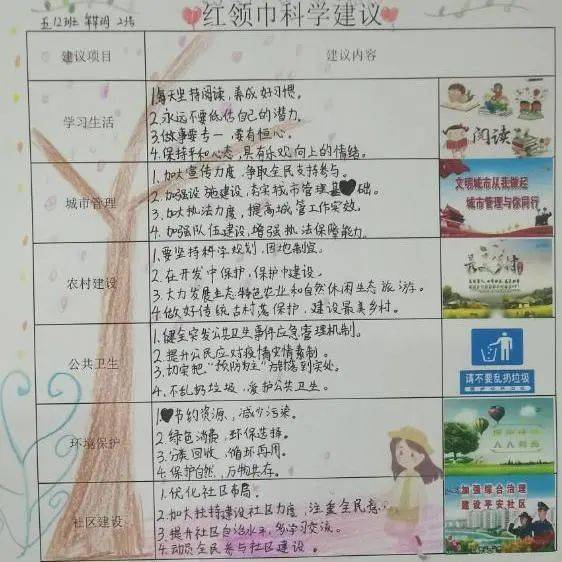 红领巾科学建议
五12班
建议项目
建议内容
学习生活
1.每天坚持阅读，养成好习惯。
2.永远不要低估自己的潜力。
3.做事要专一，要有恒心。
4.保持平和心态，具有乐观向上的情绪。
阅读
城市管理
1.加大宣传力度，争取全民支持参与。
2.加强设施建设，夯实城市管理基础。
3.加大执法力度，提高城管工作实效。
4.加强队伍建设，增强执法保障能力。
文明城市从我做起
城市管理与你同行
农村建设
1.要坚持科学规划，因地制宜。
2.在开发中保护，保护中建设。
3.大力发展生态特色农业和自然休闲生态旅游。
4.做好传统古村落保护，建设最美乡村。
公共卫生
1.健全突发公共卫生事件应急管理机制。
2.提升公民应对疫情实情素制。
3.切实把“预防为主”方针落到实处。
4.不乱扔垃圾，爱护公共卫生。
请不要乱扔垃圾
环境保护
1.节约资源，减少污染。
2.绿色消费，环保选择。
3.分类回收，循环再用。
4.保护自然，万物共存。
社区建设
1.优化社区布局。
2.加大扶持建设社区力度，注重全民意
3.提升社区自治水平，多学习交流。
4.动员全民参与社区建设。
加强综合治理
建设平安社区